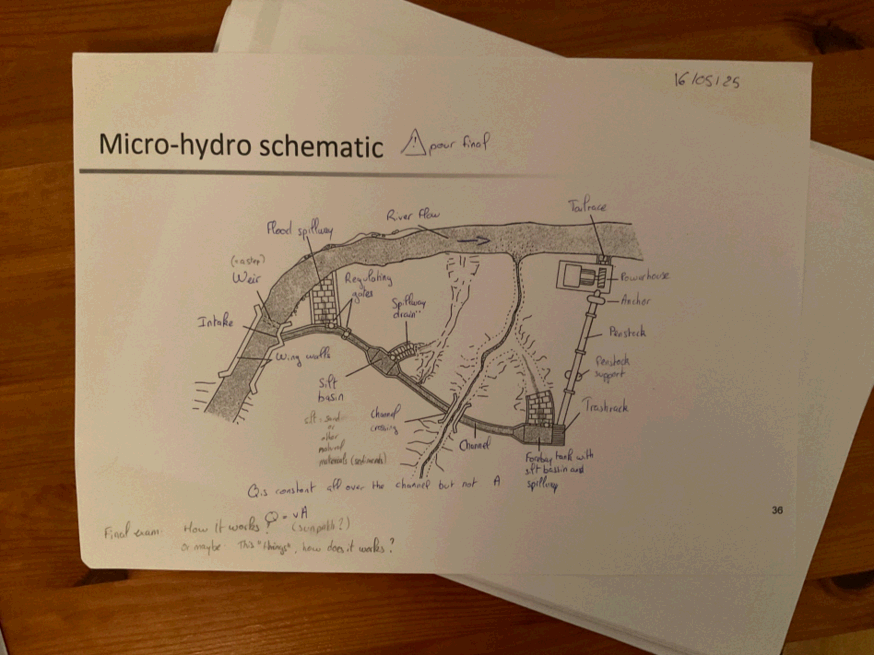 16/05/25
Micro-hydro schematic
pour final
Tailrace
River flow
Flood spillway
Weir
Regulating
gates
Powerhouse
Anchor
Spillway
drain
Intake
Penstock
Wing walls
Penstock
support
Silt
basin
Trashrack
Channel
crossing
Channel
or
other
natural
materials (sediments)
Forebay tank with
silt bassin and
spillway
Q is constant all over the channel but not A
Q = vA
36
Final exam: How It works?
or maybe: This "things", how does it works?